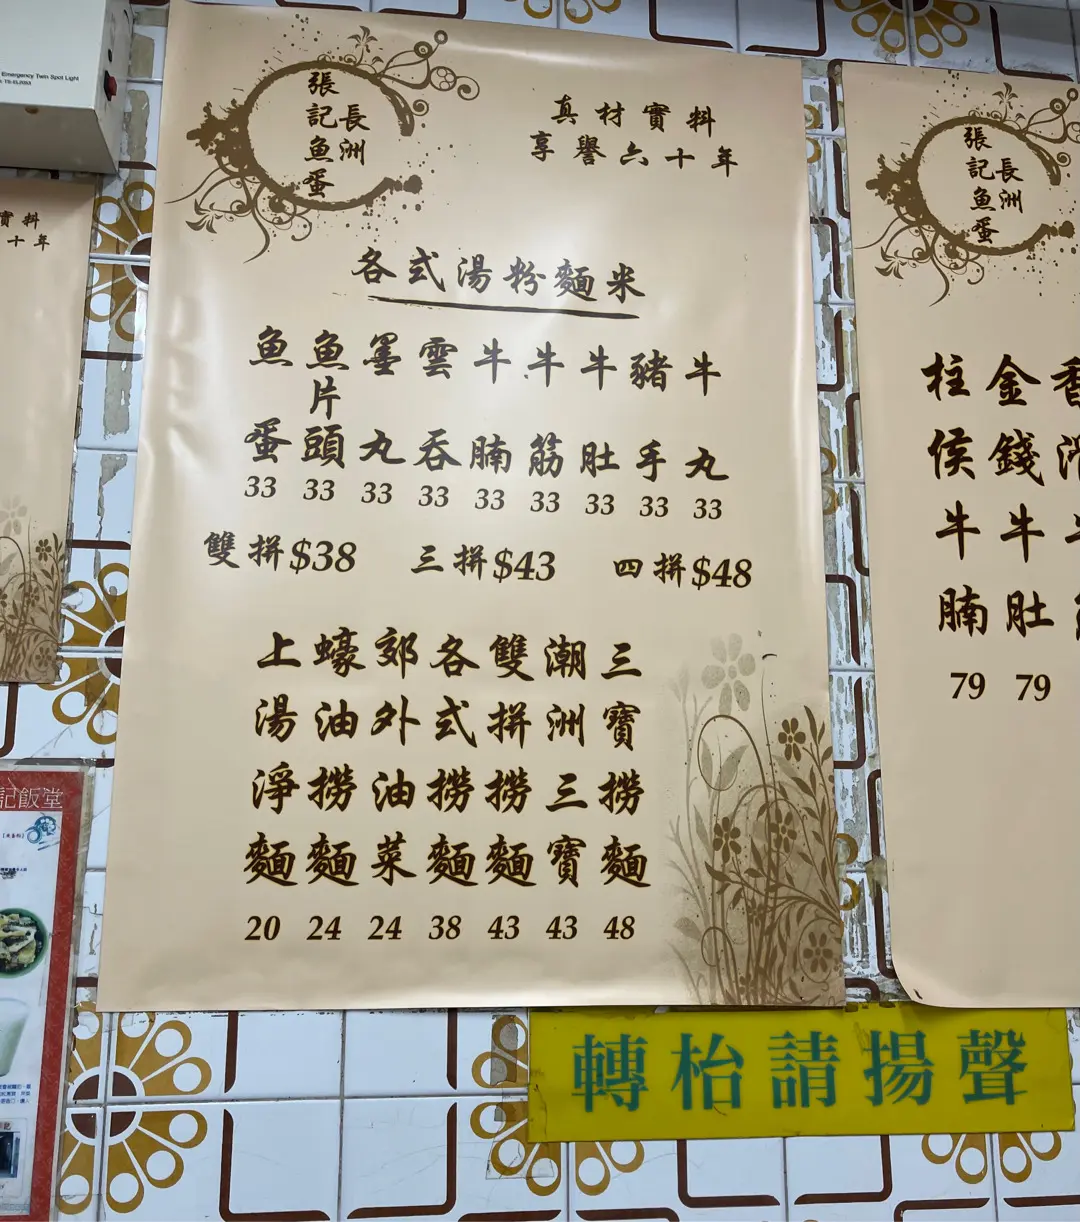 Emergency Twin Spot Light
實料
十年
張記魚蛋
長洲
真材實料
享譽六十年
各式湯粉麵米
魚蛋 33
魚片頭 33
墨丸 33
雲吞 33
牛腩 33
牛筋 33
牛肚 33
豬手 33
牛丸 33
雙拼$38 三拼$43 四拼$48
上湯淨麵 20
蠔油撈麵 24
郊外油菜 24
各式撈麵 38
雙拼撈麵 43
潮洲三寶 43
三寶撈麵 48
張記魚蛋
長洲
柱侯牛腩 79
金錢牛肚 79
記飯堂
轉枱請揚聲